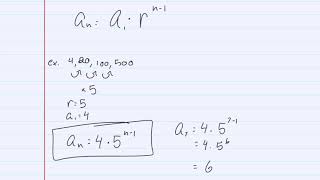 aₙ = a₁ · r^(n-1)
ex. 4, 20, 100, 500
× 5
r = 5
a₁ = 4
aₙ = 4 · 5^(n-1)
a₇ = 4 · 5^(7-1)
= 4 · 5⁶
= 6